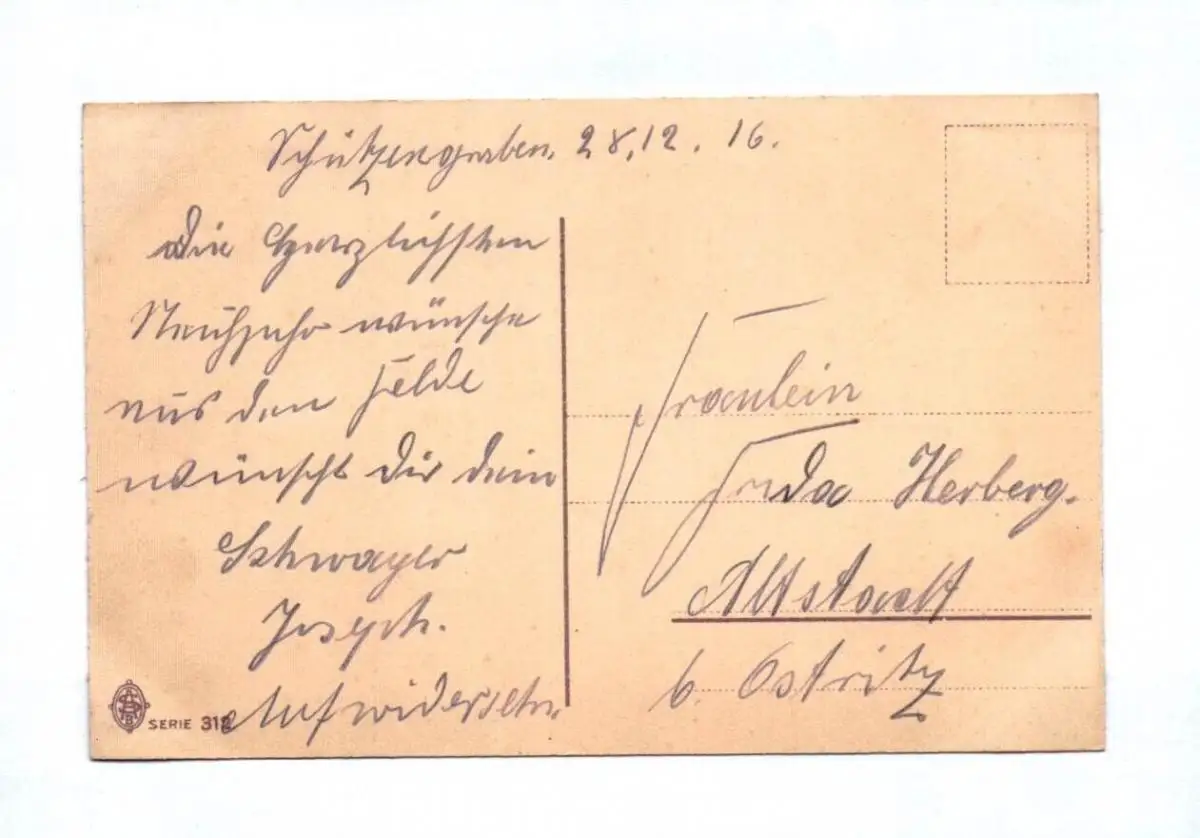 Schützengraben, 28.12.16.
Die Herzlichsten
Neuhjahr wünsche
aus den Felde
wünscht dir dein
Schwager
Joseph.
Auf widersehn
SERIE 312
Fräulein
Frida Herberg.
Altstadt
b. Ostritz